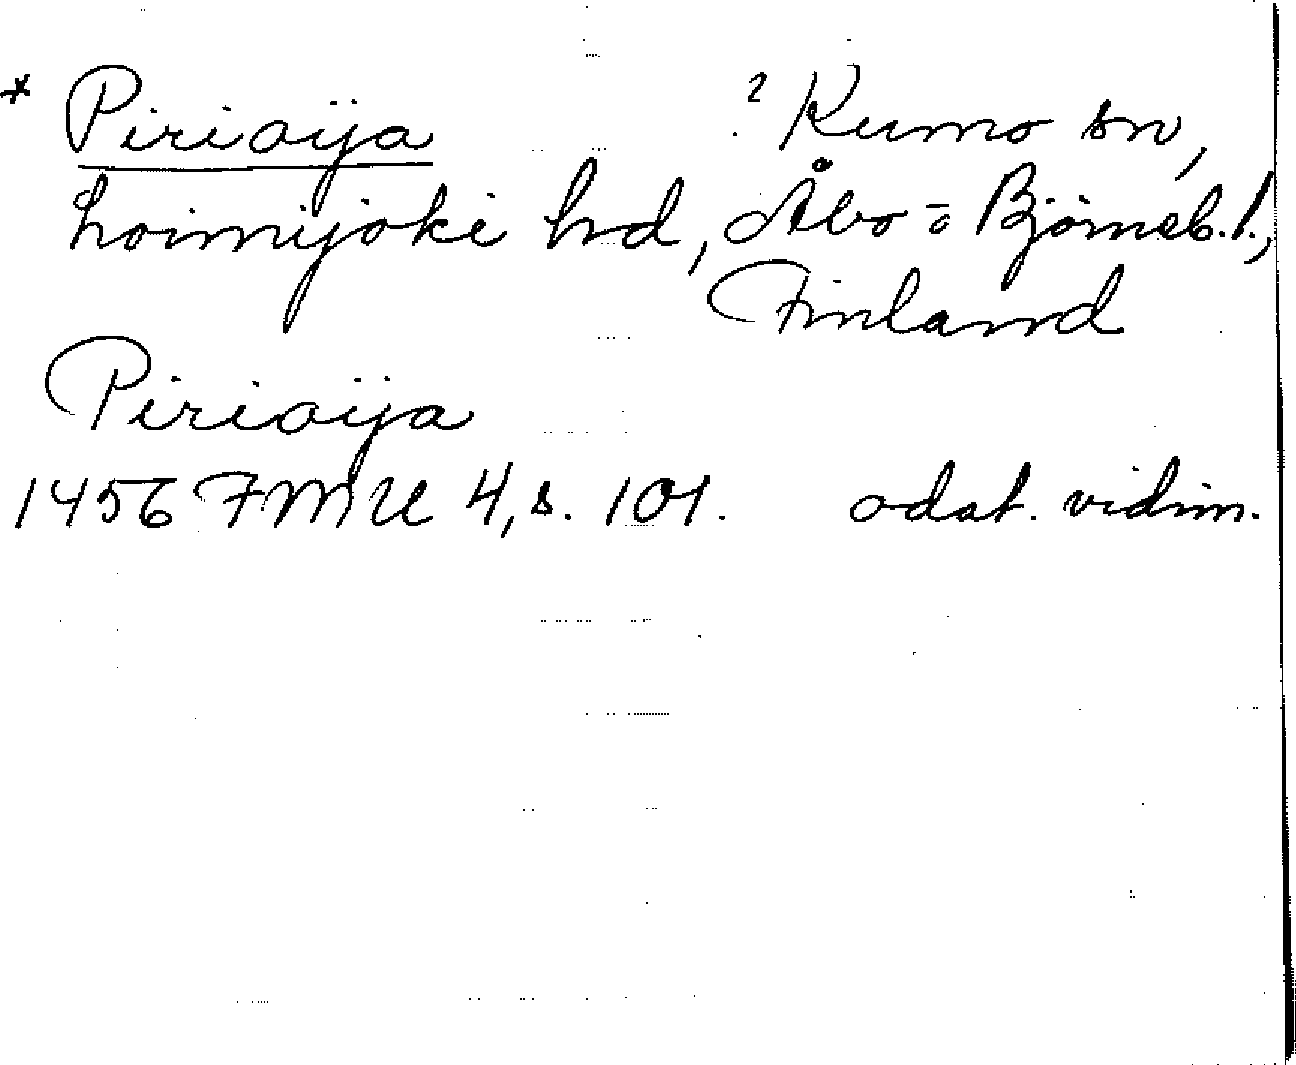 * Pirioija ? Kumo sn,
Loimijoki hd, Åbo o Björneb. l.,
Finland
Pirioija
1456 FMU 4, s. 101. odat. vidim.